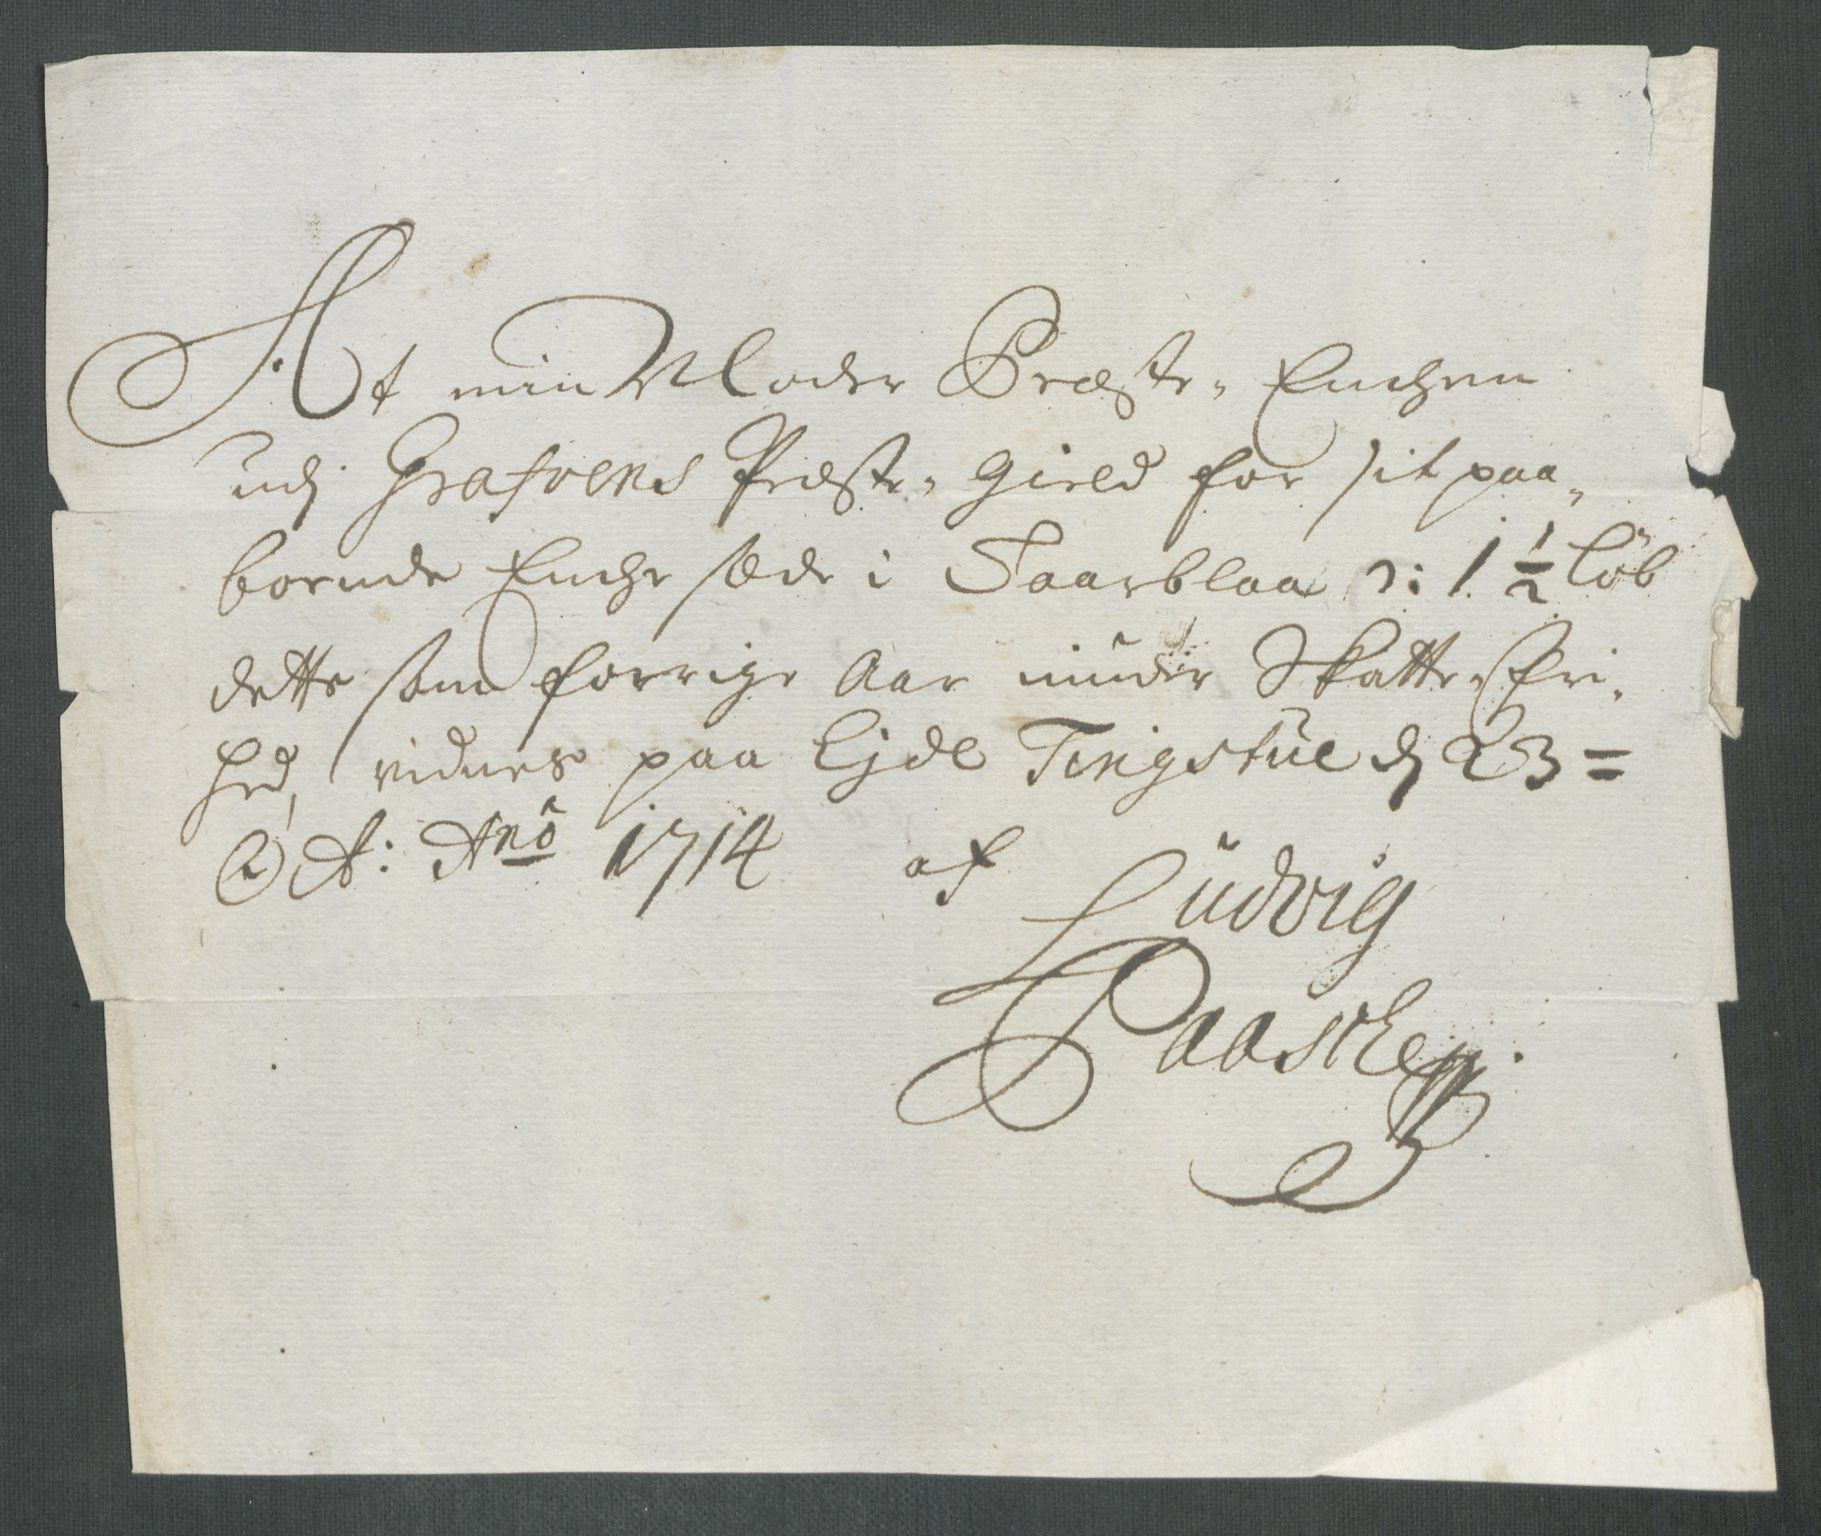 At min Moder Præste-Enchen
udj Grafvens Præste-gield for sit paa-
boende Enche sæde i Saarblaa ɔ: 1 1/2 Løb
dette som forrige Aar niuder Skatte-Fri-
hed, vidnes paa Ejde Tingstue d 23 =
Oct: Ano 1714 af
Ludvig
Paaske